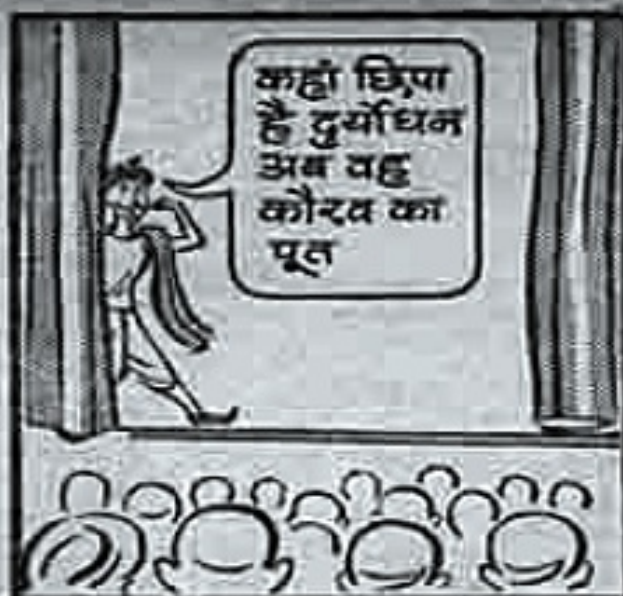 कहाँ छिपा
है दुर्योधन
अब वह
कौरव का
पूत